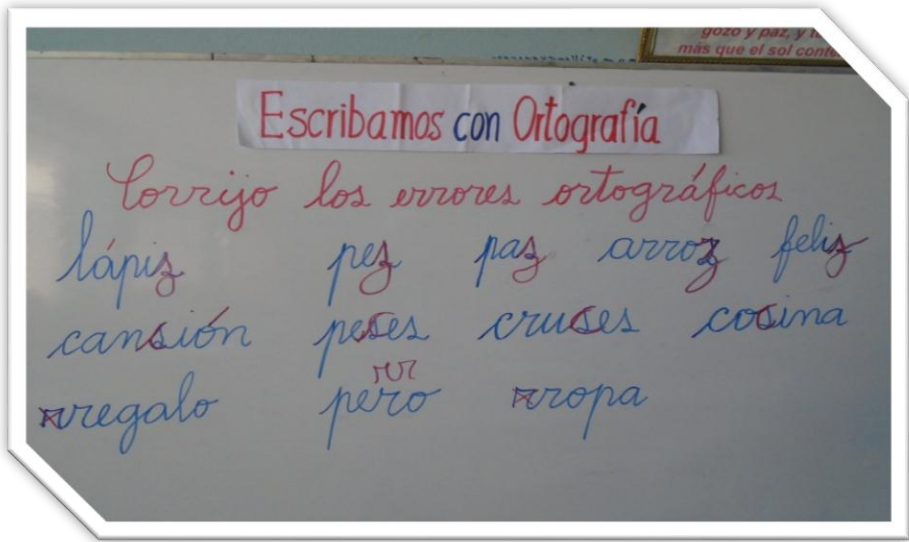 gozo y paz, y
más que el sol
Escribamos con Ortografía
Corrijo los errores ortográficos
lápiz pez paz arroz feliz
canción peces cruces cocina
rr
rregalo pero rropa